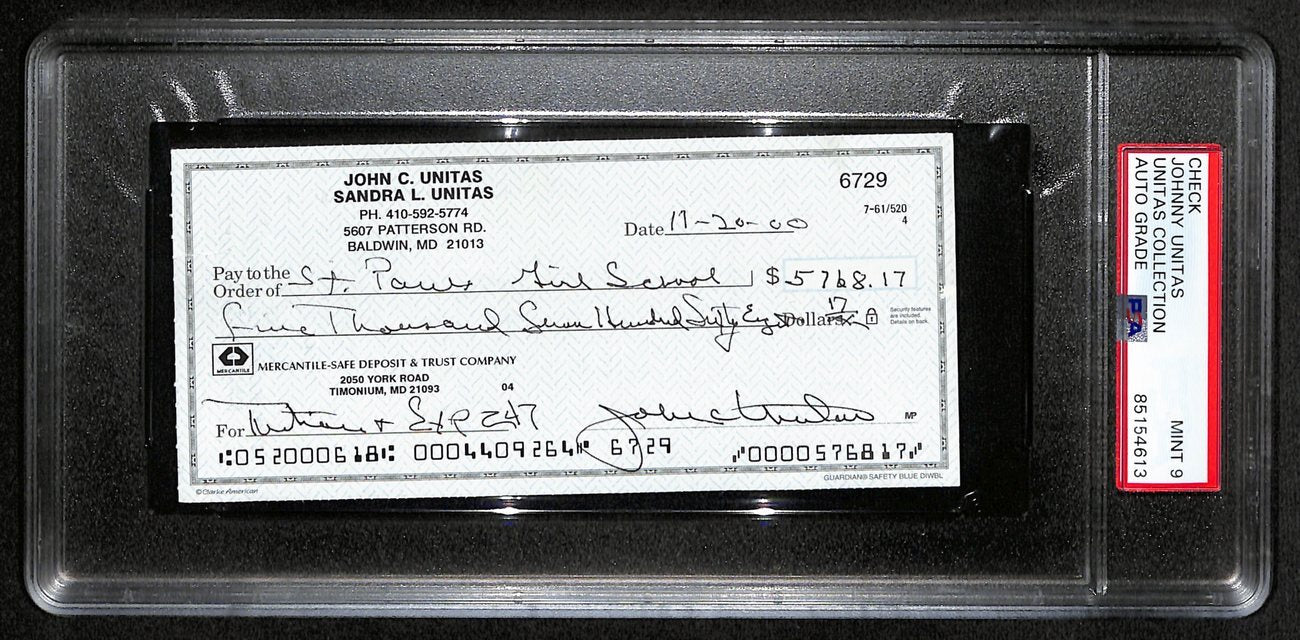 JOHN C. UNITAS
SANDRA L. UNITAS
PH. 410-592-5774
5607 PATTERSON RD.
BALDWIN, MD 21013
6729
7-61/520
4
Date 11-20-00
Pay to the
Order of St. Pauls Girl School $ 5768.17
Five Thousand Seven Hundred Sixty Eight Dollars 17
Security features
are included.
Details on back.
MERCANTILE
MERCANTILE-SAFE DEPOSIT & TRUST COMPANY
2050 YORK ROAD
TIMONIUM, MD 21093
04
For Tuition + Exp 247 John C Unitas MP
⑆052000618⑆ 0004409264⑈ 6729 ⑈0000576817⑈
© Clarke American
GUARDIAN® SAFETY BLUE DIWBL
CHECK
JOHNNY UNITAS
UNITAS COLLECTION MINT 9
AUTO GRADE 85154613
PSA